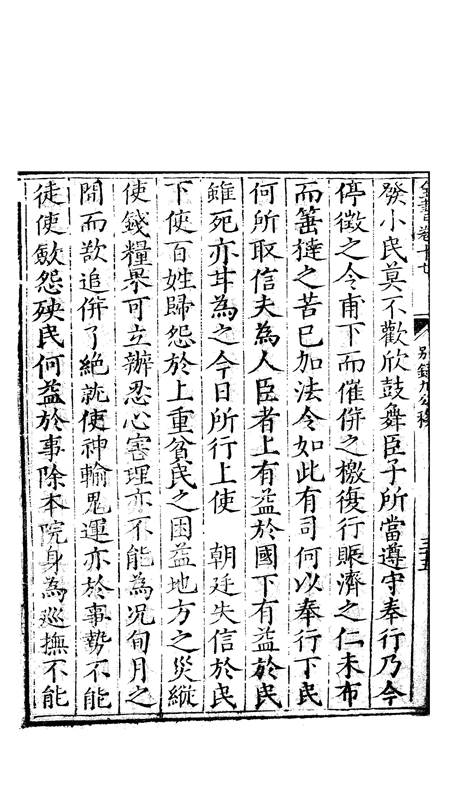 全書 卷十七 別錄九 公移 三十五
發小民莫不歡欣鼓舞臣子所當遵守奉行乃今
停徵之令甫下而催併之檄復行賑濟之仁未布
而箠撻之苦已加法令如此有司何以奉行下民
何所取信夫為人臣者上有益於國下有益於民
雖死亦甘為之今日所行上使　朝廷失信於民
下使百姓歸怨於上重貧民之困益地方之災縱
使錢糧果可立辦忍心害理亦不能為况旬月之
間而欲追併了絶就使神輸鬼運亦於事勢不能
徒使歛怨殃民何益於事除本院身為巡撫不能